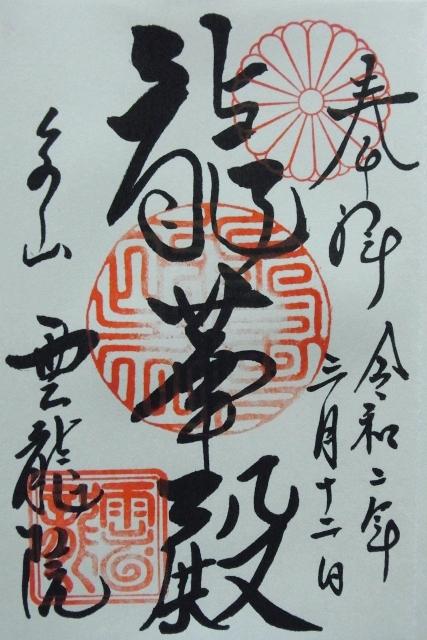 奉拝
令和二年
三月十二日
龍華殿
泉山
雲龍院